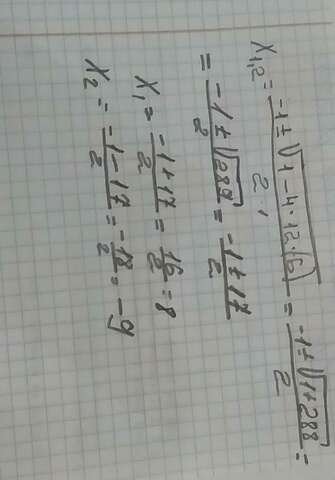 x₁,₂ = (-1±√(1-4·12·(6)))/(2·1) = (-1±√(1+288))/2 =
= (-1±√289)/2 = (-1±17)/2
x₁ = (-1+17)/2 = 16/2 = 8
x₂ = (-1-17)/2 = -18/2 = -9